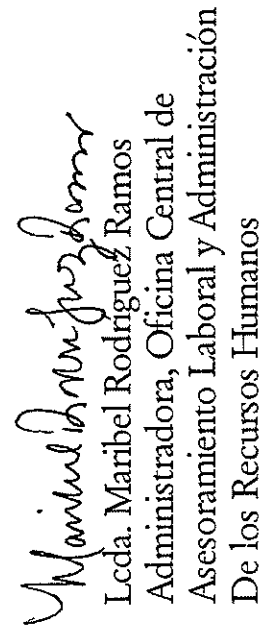 Maribel Rodríguez Ramos
Lcda. Maribel Rodríguez Ramos
Administradora, Oficina Central de
Asesoramiento Laboral y Administración
De los Recursos Humanos